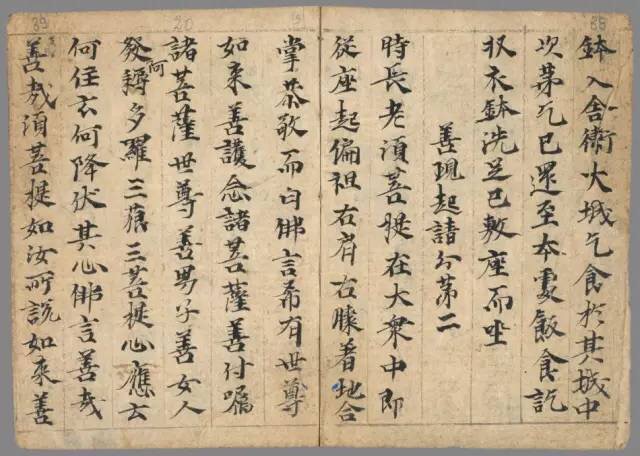 鉢入舍衛大城乞食於其城中
次苐乞已還至本處飯食訖
收衣鉢洗足已敷座而坐
善現起請分苐二
時長老須菩提在大衆中即
從座起偏袒右肩右膝着地合
掌恭敬而白佛言希有世尊
如來善護念諸菩薩善付囑
諸菩薩世尊善男子善女人
發阿耨多羅三藐三菩提心應云
何住云何降伏其心佛言善哉
善哉須菩提如汝所說如來善
39
20
38